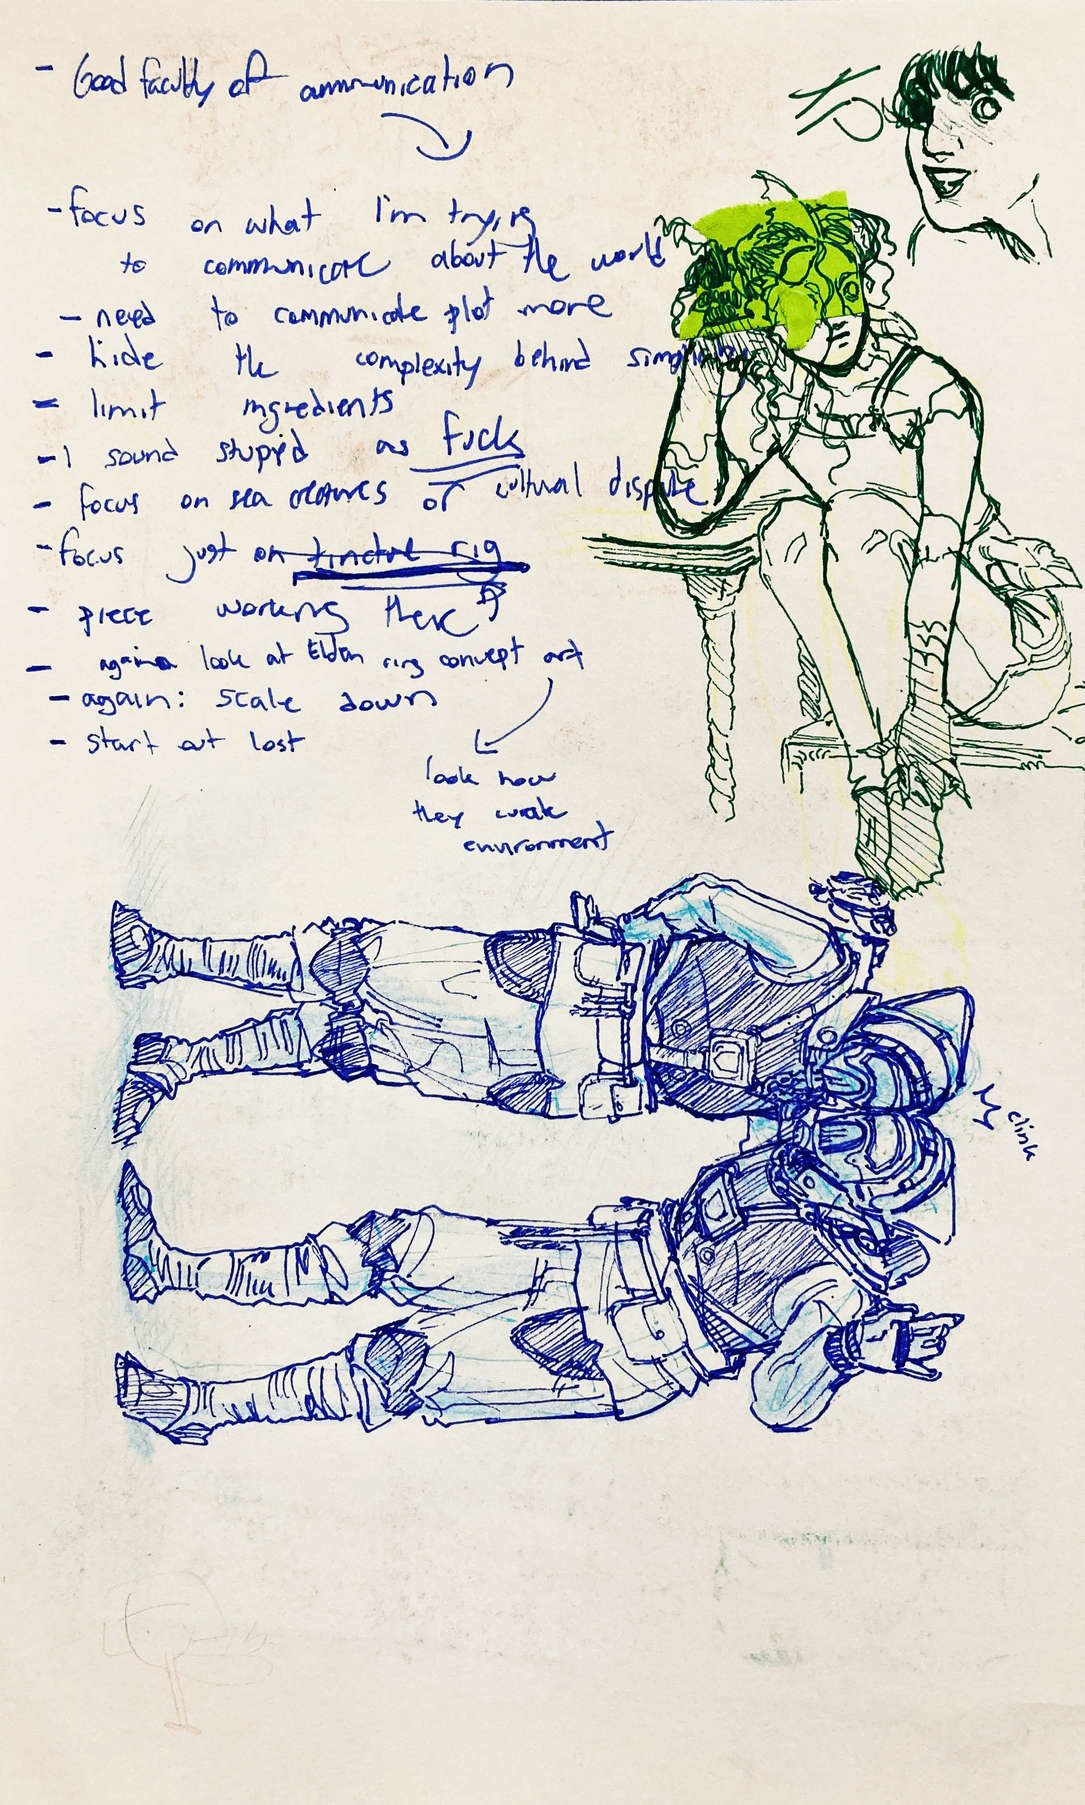 - Good faculty of communication
- focus on what I'm trying
to communicate about the world
- need to communicate plot more
- hide the complexity behind simplicity
- limit ingredients
- I sound stupid as fuck
- focus on sea creatures or cultural dispute
- focus just on tinctul rig
- piece working there
- again look at Elden ring concept art
- again: scale down
- start out lost
look how
they work
environment
clink